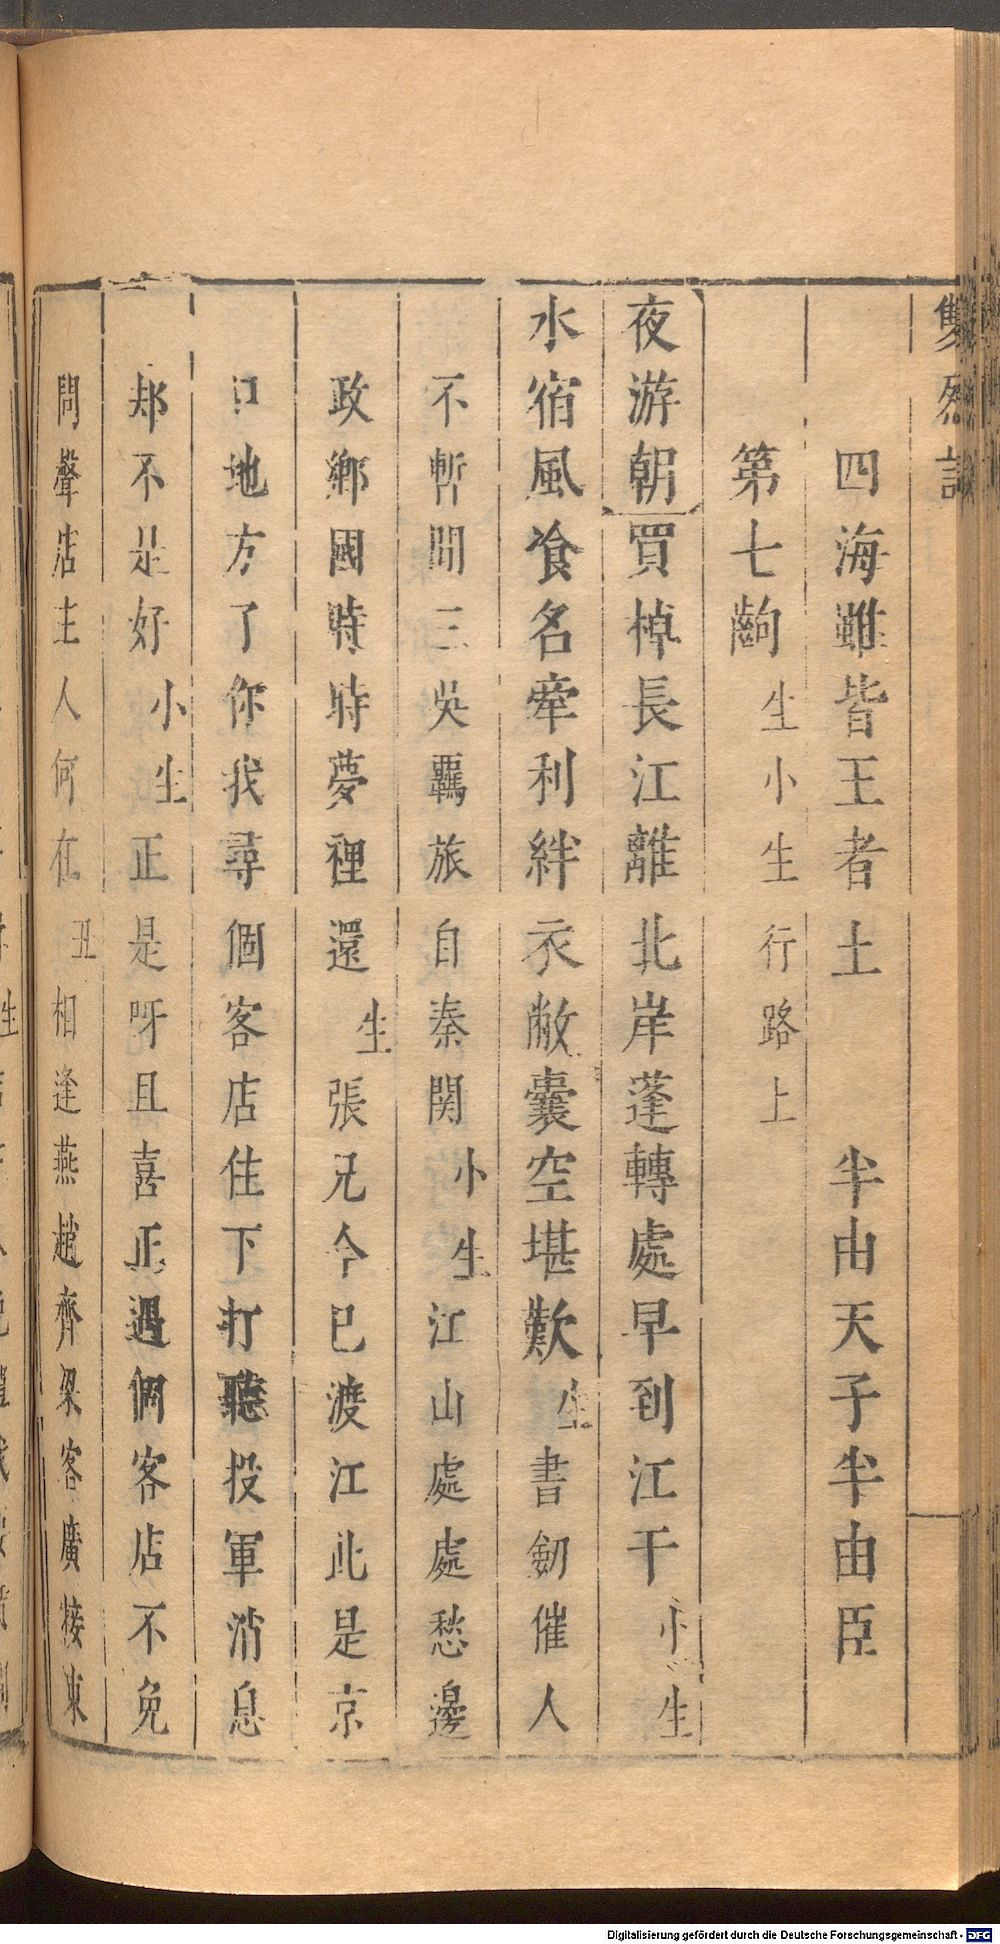 雙烈記
四海雖皆王者土　半由天子半由臣
第七齣　生小生行路上
夜游朝買棹長江離北岸蓬轉處早到江干小生
水宿風飡名牽利絆衣敝囊空堪歎生書劒催人
不暫閒三吳羈旅自秦関小生江山處處愁邊
政鄉國時時夢裡還生張兄今已渡江此是京
口地方了你我尋個客店住下打聽投軍消息
却不是好小生正是呀且喜正遇個客店不免
問聲店主人何在丑相逢燕趙齊梁客廣接東
Digitalisierung gefördert durch die Deutsche Forschungsgemeinschaft - DFG